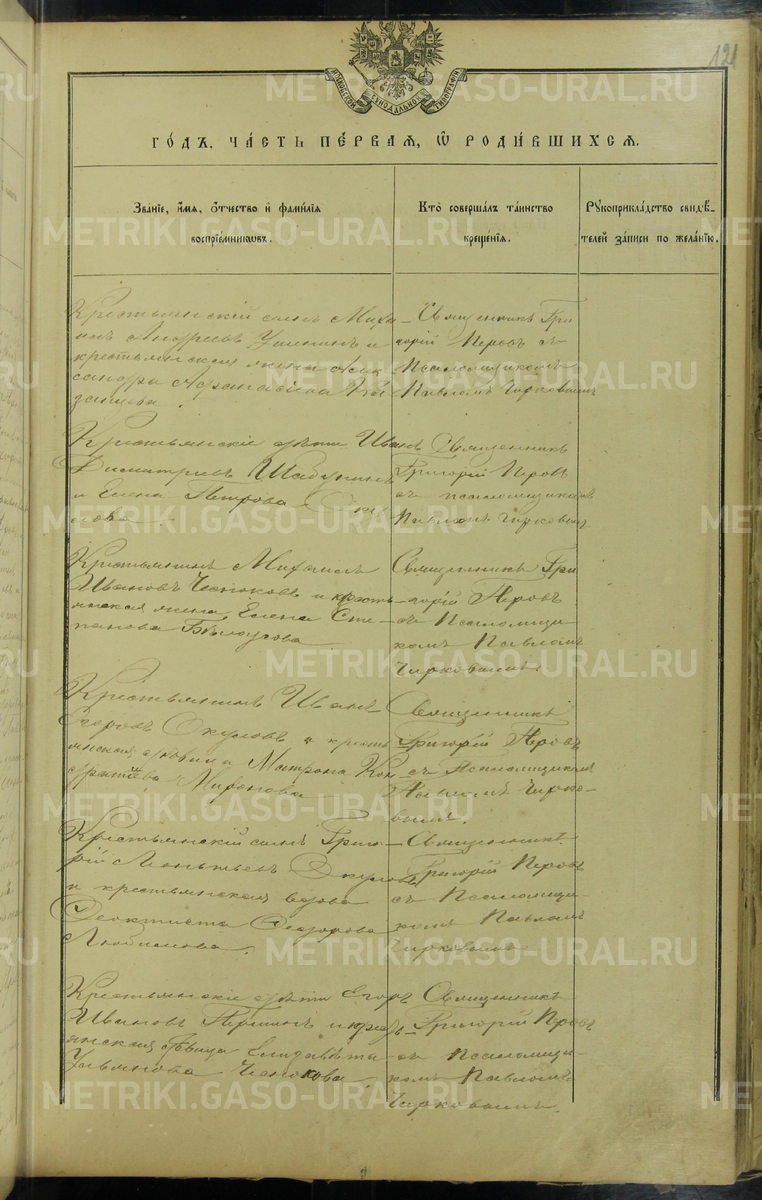 121
МОСКОВСКОЙ СѴНОДАЛЬНОЙ ТИПОГРАФІИ
ГО́ДЪ, ЧА́СТЬ ПЕ́РВАЯ, Ѡ РОДИ́ВШИХСЯ.
Зва́нїе, и́мя, о́тчество и҆ фами́лїя
воспрїе́мникѡвъ.
Кто̀ совершалъ та́инство
креще́нїя.
Рꙋкоприкла́дство свидѣ́-
телей за́писи по жела́нїю.
Крестьянскій сынъ Миха-
илъ Андреевъ и
крестьянская жена Алек
сандра
Священникъ Гри
горій Перовъ съ
Псаломщикомъ
Павломъ Чирковымъ
Крестьянскіе дѣти Иванъ
Димитріевъ Шабунинъ
и Елена Петрова
Священникъ
Григорій Перовъ
съ псаломщикомъ
Павломъ Чирковымъ
Крестьянинъ Михаилъ
Ивановъ Чесноковъ и кресть
янская жена Елена Сте-
панова Бѣлоусова
Священникъ Гри
горій Перовъ
съ Псаломщи
комъ Павломъ
Чирковымъ
Крестьянинъ Иванъ
Егоровъ Окуловъ и кресть
янская вдовица Матрона Кон
дратьева Миронова
Священникъ
Григорій Перовъ
съ Псаломщикомъ
Павломъ Чирко-
вымъ.
Крестьянскій сынъ Григо-
рій Леонтьевъ Окуловъ
и крестьянская вдова
Феоктиста Феодорова
Священникъ
Григорій Перовъ
съ Псаломщи
комъ Павломъ
Чирковымъ
Крестьянскіе дѣти Егоръ
Ивановъ Першинъ и кресть
янская дѣвица Елизавета
Ульянова Чеснокова
Священникъ
Григорій Перовъ
съ Псаломщи-
комъ Павломъ
Чирковымъ.
METRIKI.GASO-URAL.RU